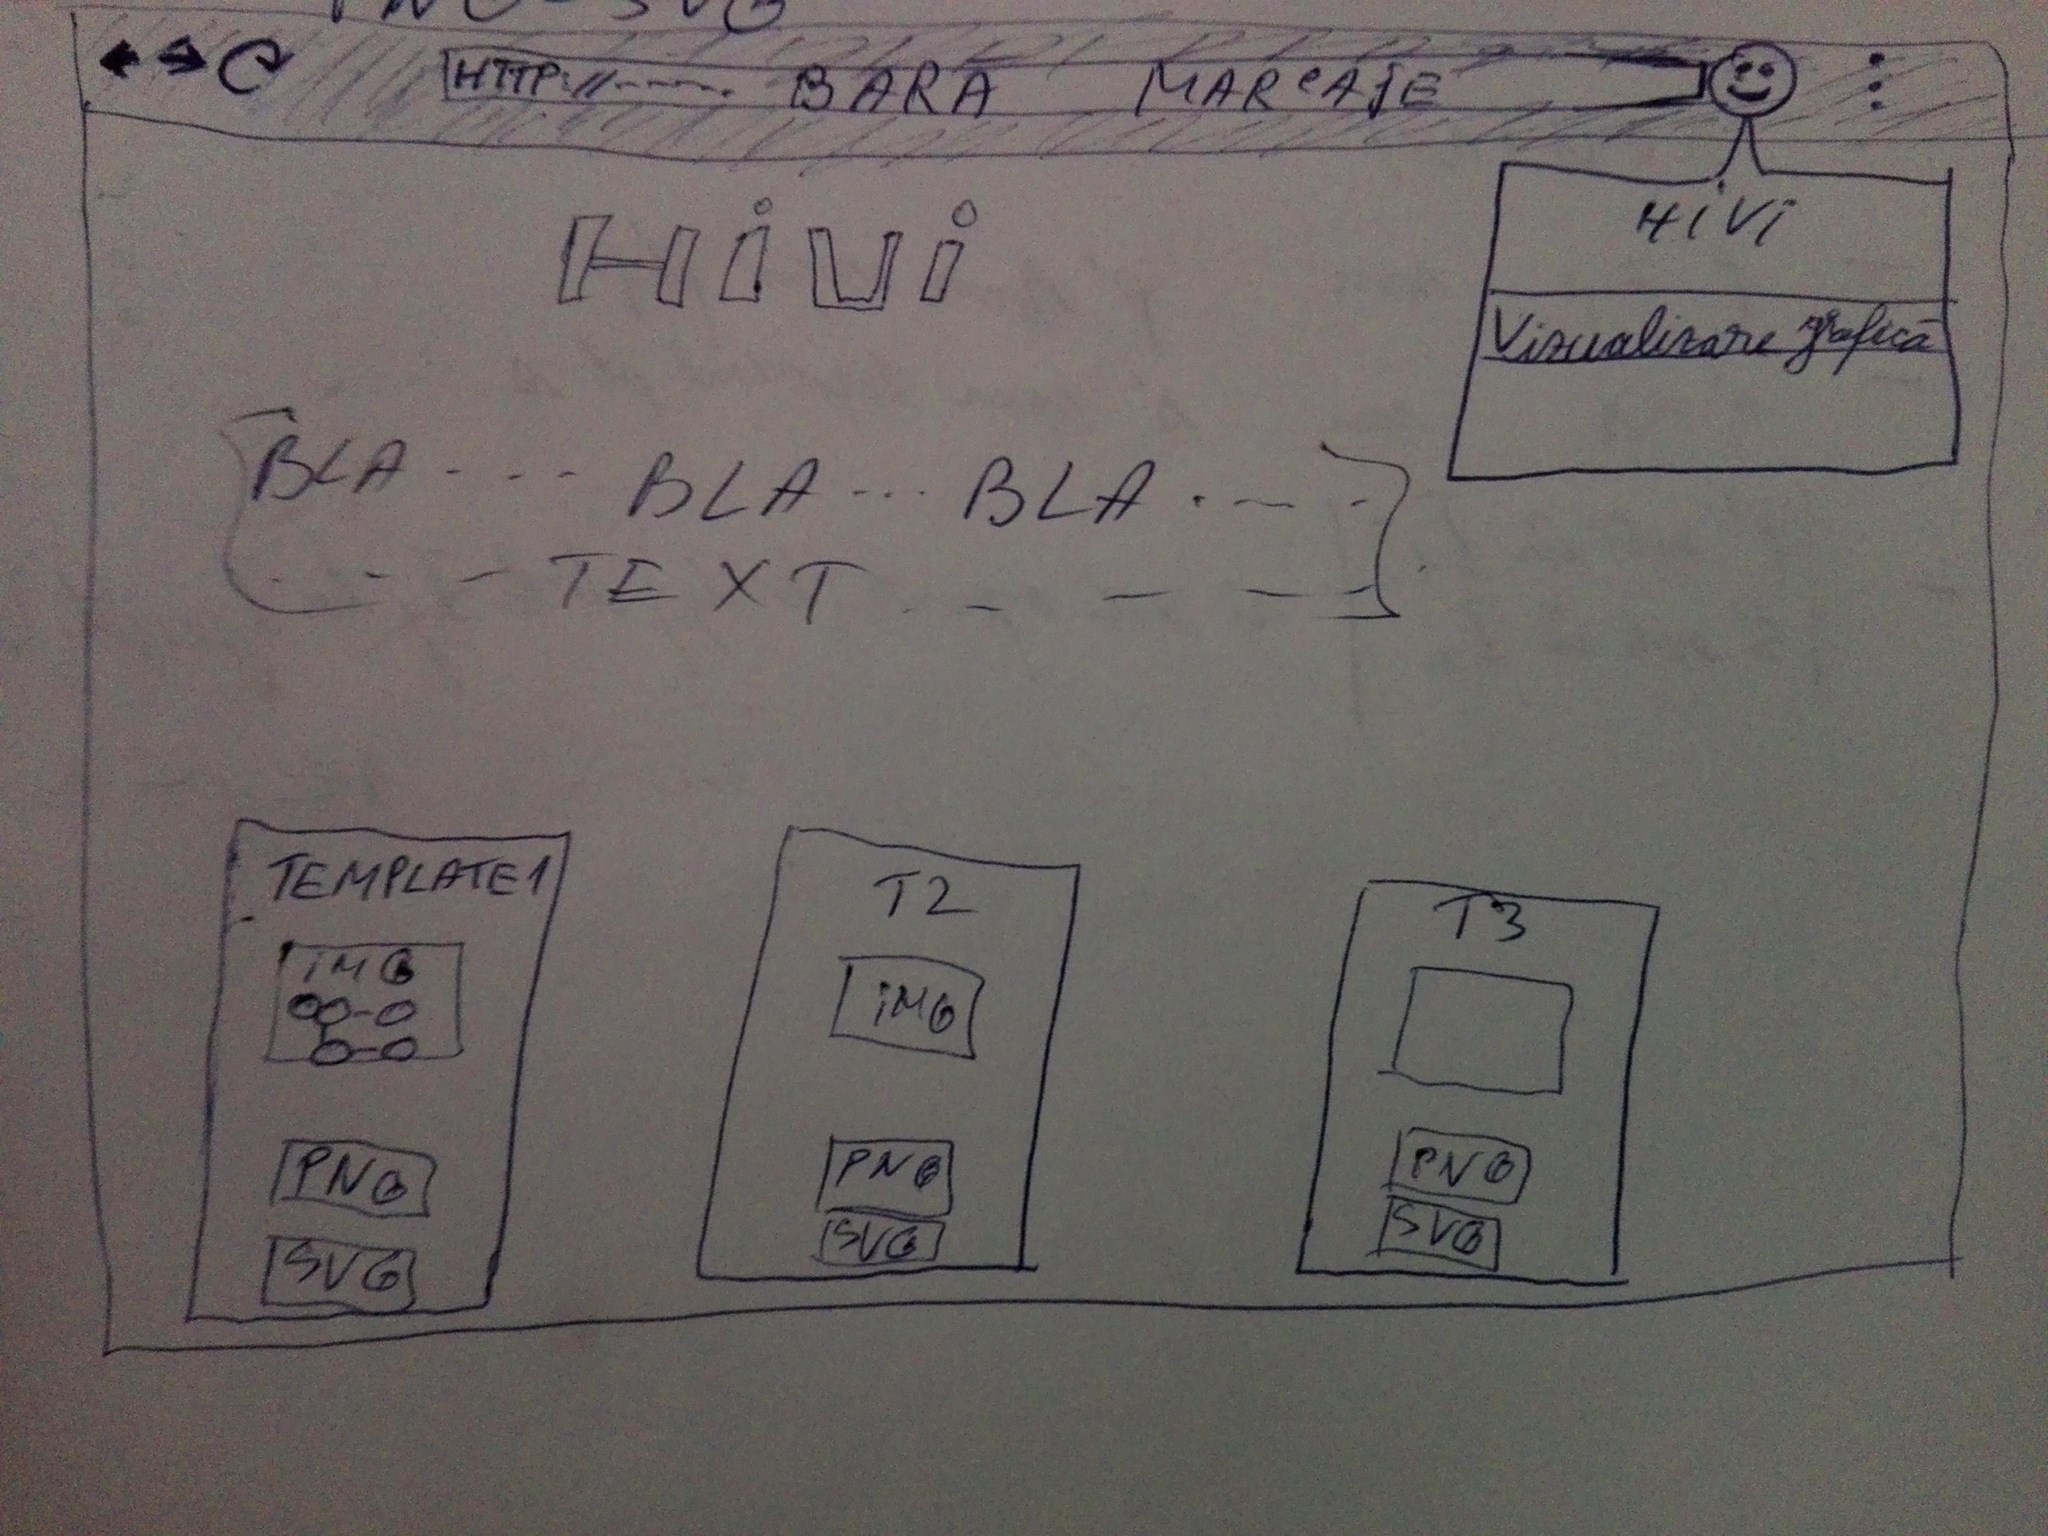 PNG - SVG
HTTP://------. BARA MARCAJE
HiVi
HiVi
Vizualizare grafică
BLA - - - - BLA - - - BLA . - - -
. - - TEXT . - - - -
TEMPLATE1
IMG
PNG
SVG
T2
iMG
PNG
SVG
T3
PNG
SVG